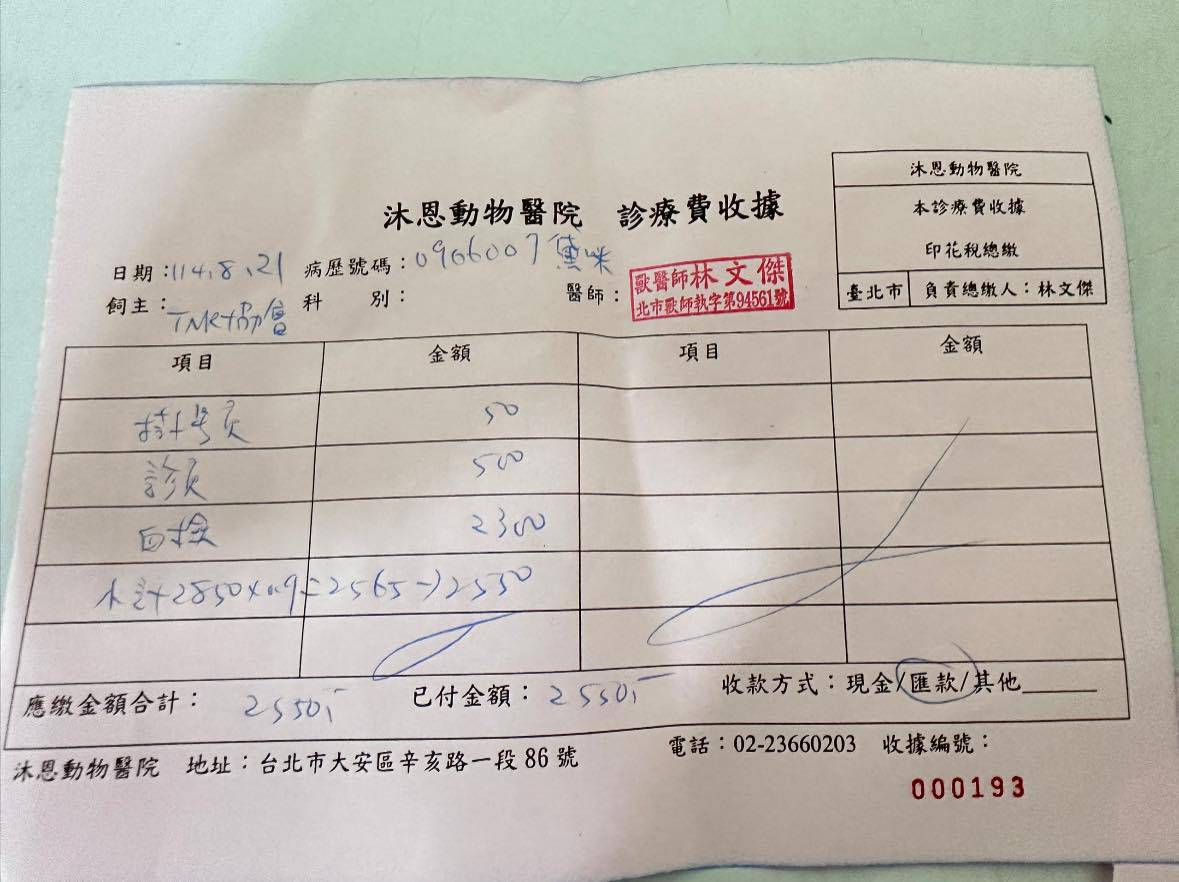 沐恩動物醫院
本診療費收據
印花稅總繳
臺北市 負責總繳人：林文傑
沐恩動物醫院 診療費收據
日期：114.8.21 病歷號碼：0906007 黛咪
獸醫師林文傑
北市獸師執字第94561號
飼主：TNR協會 科 別： 醫師：
項目 金額 項目 金額
掛号費 50
診費 500
血檢 2300
小計 2850×0.9=2565→2550
應繳金額合計：2550,- 已付金額：2550,- 收款方式：現金/匯款/其他
沐恩動物醫院 地址：台北市大安區辛亥路一段86號 電話：02-23660203 收據編號：
000193